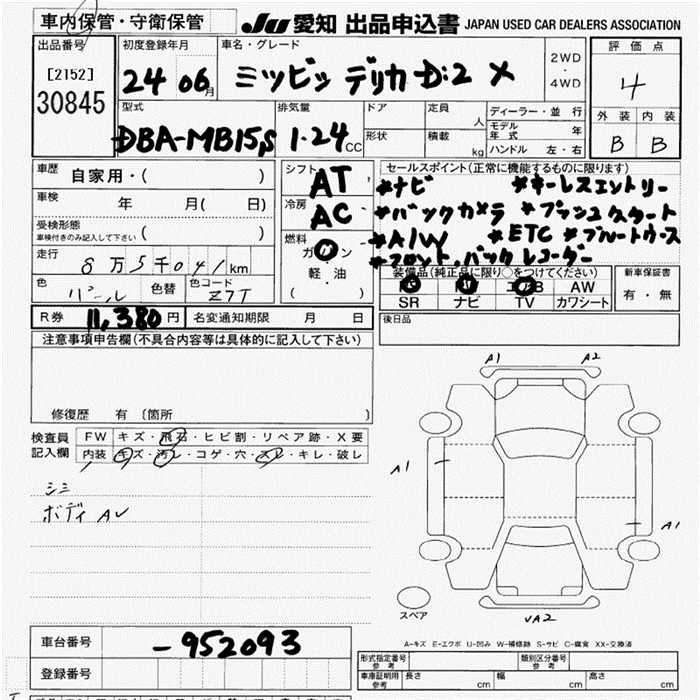 車内保管・守衛保管
JU 愛知 出品申込書 JAPAN USED CAR DEALERS ASSOCIATION
出品番号
[2152]
30845
初度登録年月
24 06月
車名・グレード
ミツビシ デリカ D:2 X
2WD
・
4WD
評価点
4
外装 内装
B B
型式
DBA-MB15S
排気量
1.24CC
ドア
形状
定員 人
積載 kg
ディーラー・並行
モデル年式 年
ハンドル 左・右
車歴 自家用・( )
車検 年 月( 日)
受検形態
車検付きのみ記入して下さい ( )
走行 8万5千041km
色 パール 色替 色コード Z7T
シフト AT
冷房 AC
燃料
ガソリン
軽・油
( )
セールスポイント(正常に機能するものに限ります)
*ナビ *キーレスエントリー
*バックカメラ *プッシュスタート
*A/W *ETC *ブルートゥース
*フロント、バックレコーダー
装備品(純正品に限り○をつけてください)
AW
SR ナビ TV カワシート
新車保証書
有・無
R券 11,380円 名変通知期限 月 日
後日品
注意事項申告欄(不具合内容等は具体的に記入して下さい)
修復歴 有〔箇所 〕
検査員記入欄
FW キズ・飛石・ヒビ割・リペア跡・X要
内装 キズ・汚レ・コゲ・穴・スレ・キレ・破レ
シミ
ボディ AU
A1 A2
A1
A1
スペア
UA2
A-キズ E-エクボ U-凹み W-補修跡 S-サビ C-腐食 XX-交換済
車台番号 -952093
登録番号
形式指定番号 参考
類別区分番号 参考
車庫証明用 参考 長さ cm 幅 cm 高さ cm